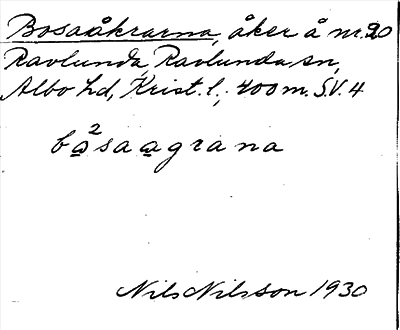 Bosaåkrarna, åker å nr. 20
Ravlunda, Ravlunda sn,
Albo hd, Krist. l., 400 m. S.V. 4
bo²saagrana
Nils Nilsson 1930